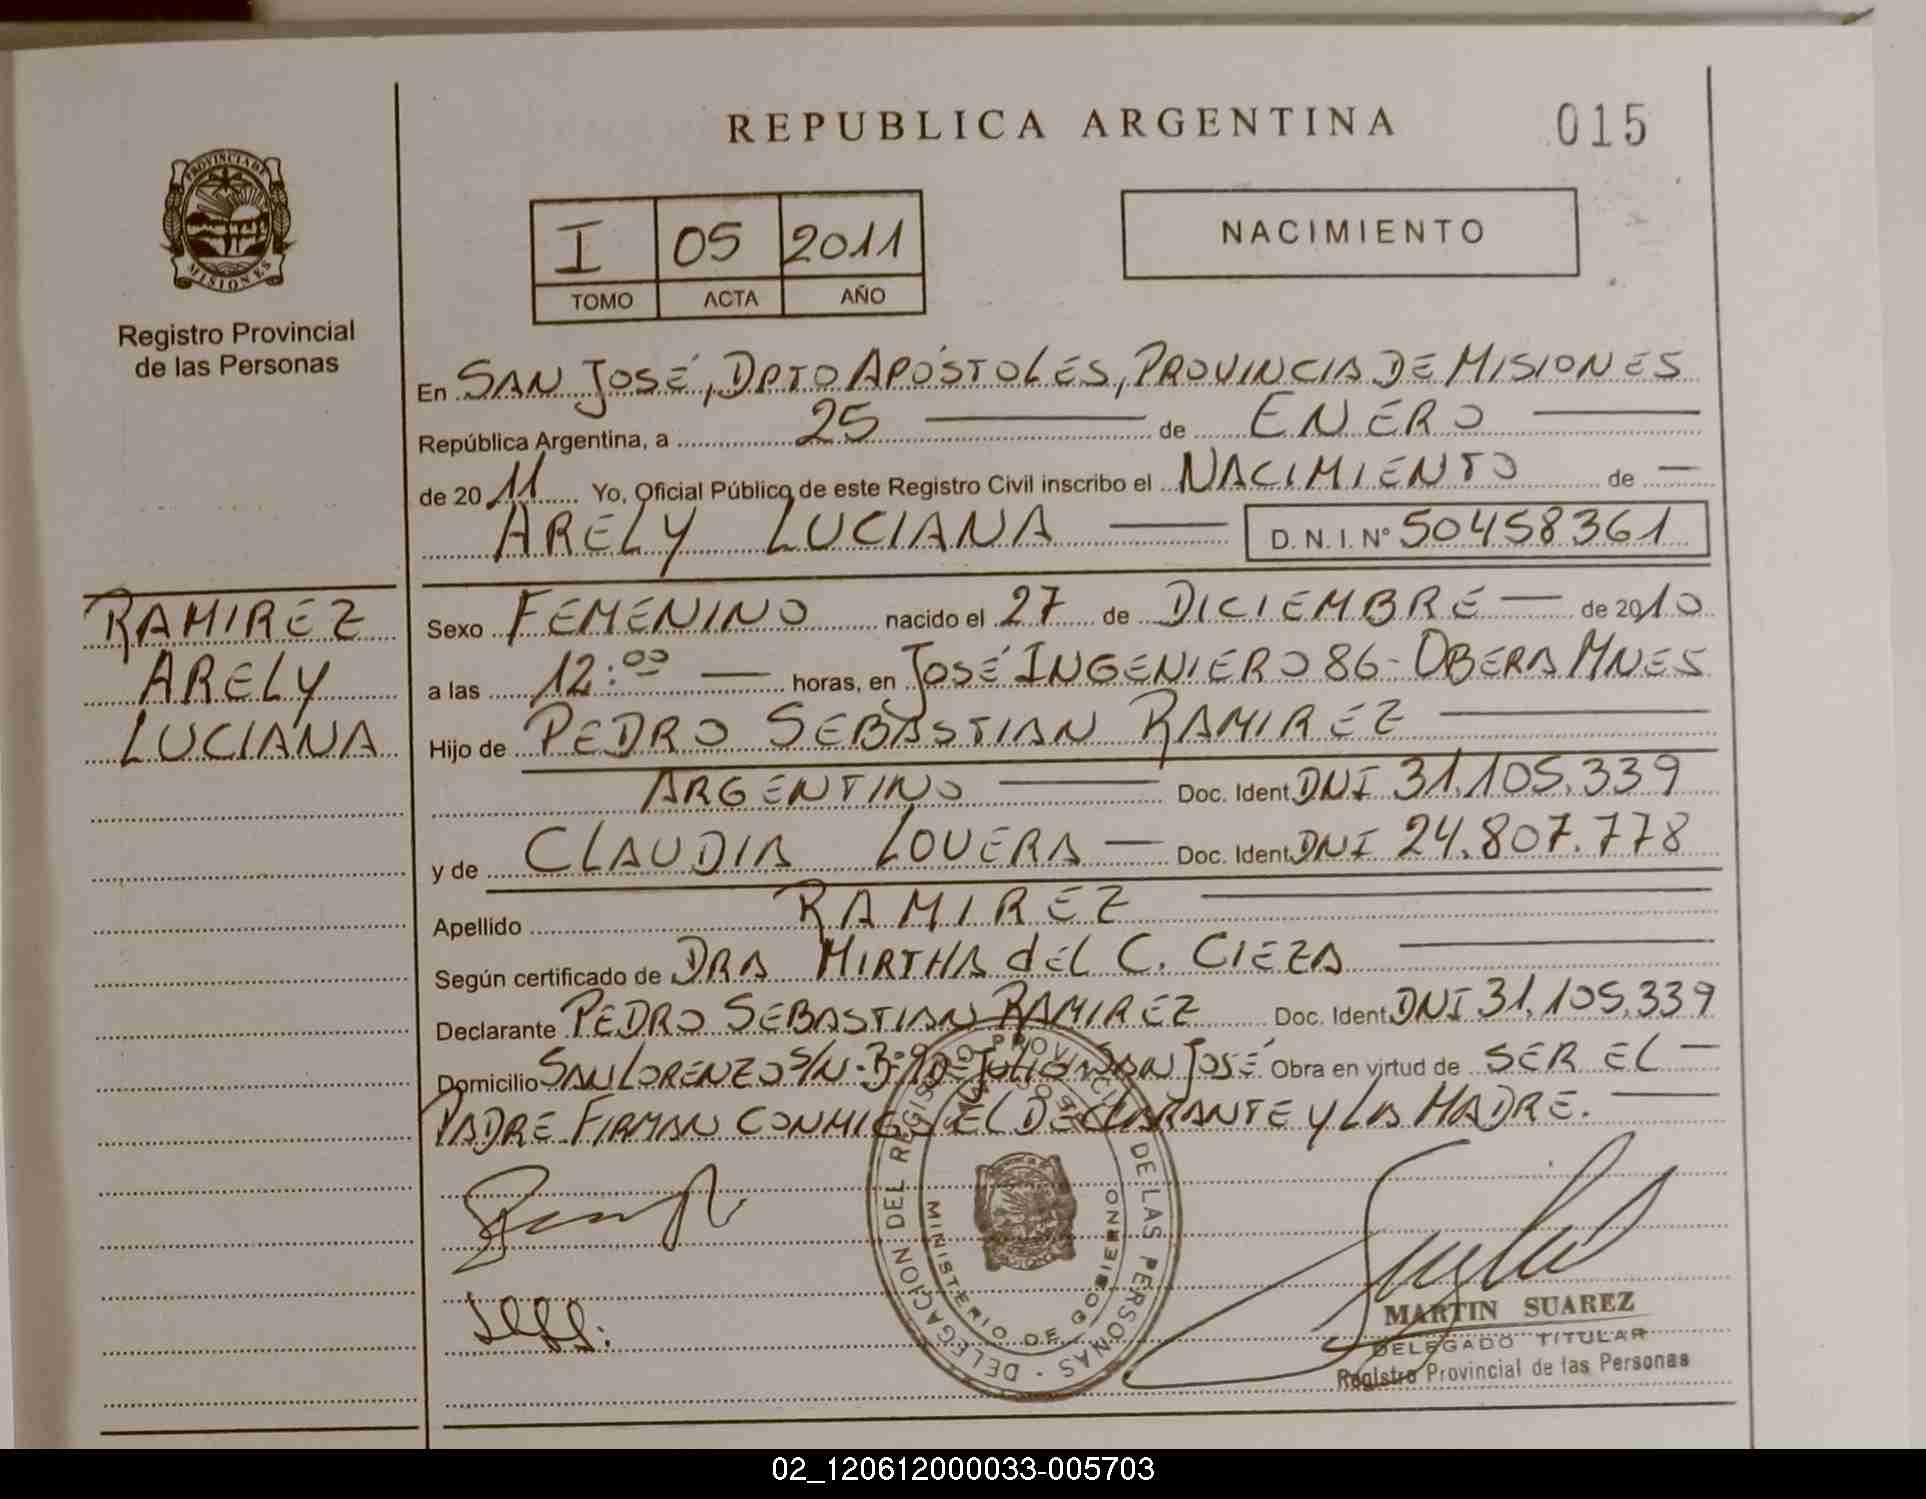 REPUBLICA ARGENTINA
015
PROVINCIA DE
MISIONES
Registro Provincial
de las Personas
I 05 2011
TOMO ACTA AÑO
NACIMIENTO
En SAN JOSÉ, DPTO APÓSTOLES, PROVINCIA DE MISIONES
República Argentina, a 25 de ENERO
de 2011 Yo, Oficial Público de este Registro Civil inscribo el NACIMIENTO de
ARELY LUCIANA D.N.I. Nº 50458361
RAMIREZ
ARELY
LUCIANA
Sexo FEMENINO nacido el 27 de DICIEMBRE de 2010
a las 12:00 horas, en JOSÉ INGENIERO 86- OBERA MNES
Hijo de PEDRO SEBASTIAN RAMIREZ
ARGENTINO Doc. Ident DNI 31.105.339
y de CLAUDIA LOVERA Doc. Ident DNI 24.807.778
Apellido RAMIREZ
Según certificado de DRA MIRTHA dEL C. CIEZA
Declarante PEDRO SEBASTIAN RAMIREZ Doc. Ident DNI 31.105.339
Domicilio SAN LORENZO S/N-Bº 9 DE JULIO SAN JOSÉ Obra en virtud de SER EL
PADRE FIRMAN CONMIGO EL DECLARANTE Y LA MADRE.
DELEGACION DEL REGISTRO PROVINCIAL DE LAS PERSONAS
MINISTERIO DE GOBIERNO
MARTIN SUAREZ
DELEGADO TITULAR
Registro Provincial de las Personas
02_120612000033-005703